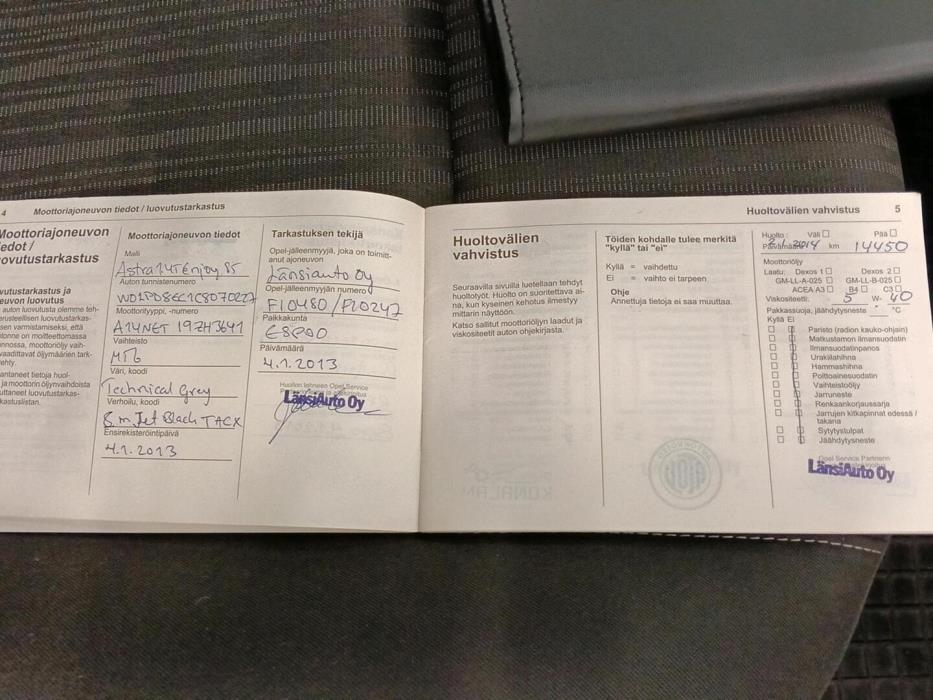 4 Moottoriajoneuvon tiedot / luovutustarkastus
Moottoriajoneuvon
tiedot /
ovutustarkastus
vutustarkastus ja
euvon luovutus
auton luovutusta olemme teh-
erusteellisen luovutustarkas-
sen varmistamiseksi, että
tonne on moitteettomassa
nnossa, moottoriöljy vaih-
vaadittavat öljymäärien tark-
ehty.
antaneet tietoja huol-
ja moottorin öljynvaihdoista
uttaneet luovutustarkas-
kastuslistan.
Moottoriajoneuvon tiedot
Malli
Astra 1.4T Enjoy S5
Auton tunnistenumero
Moottorityyppi, -numero
A14NET 19ZH3641
Vaihteisto
MT6
Väri, koodi
Technical Grey
Verhoilu, koodi
Jet Black TACX
Ensirekisteröintipäivä
4.1.2013
Tarkastuksen tekijä
Opel-jälleenmyyjä, joka on toimitt-
anut ajoneuvon
Länsiauto Oy
Opel-jälleenmyyjän numero
FI0480 / P20247
Paikkakunta
ESPOO
Päivämäärä
4.1.2013
Huollon tehneen Opel Service
LänsiAuto Oy
Huoltovälien vahvistus 5
Huoltovälien
vahvistus
Seuraavilla sivuilla luetellaan tehdyt
huoltotyöt. Huolto on suoritettava ai-
na, kun kyseinen kehotus ilmestyy
mittarin näyttöön.
Katso sallitut moottoriöljyn laadut ja
viskositeetit auton ohjekirjasta.
Töiden kohdalle tulee merkitä
"kyllä" tai "ei"
Kyllä = vaihdettu
Ei = vaihto ei tarpeen
Ohje
Annettuja tietoja ei saa muuttaa.
Huolto: Väli Pää
2014 km 14450
Moottoriöljy
Laatu: Dexos 1 Dexos 2
GM-LL-A-025 GM-LL-B-025
ACEA A3 B4 C3
Viskositeetti: 5 W- 40
Pakkassuoja, jäähdytysneste °C
Kyllä Ei
Paristo (radion kauko-ohjain)
Matkustamon ilmansuodatin
Ilmansuodatinpanos
Urakiilahihna
Hammashihna
Polttoainesuodatin
Vaihteistoöljy
Jarruneste
Renkaankorjaussarja
Jarrujen kitkapinnat edessä /
takana
Sytytystulpat
Jäähdytysneste
Opel Service Partnerin
LänsiAuto Oy